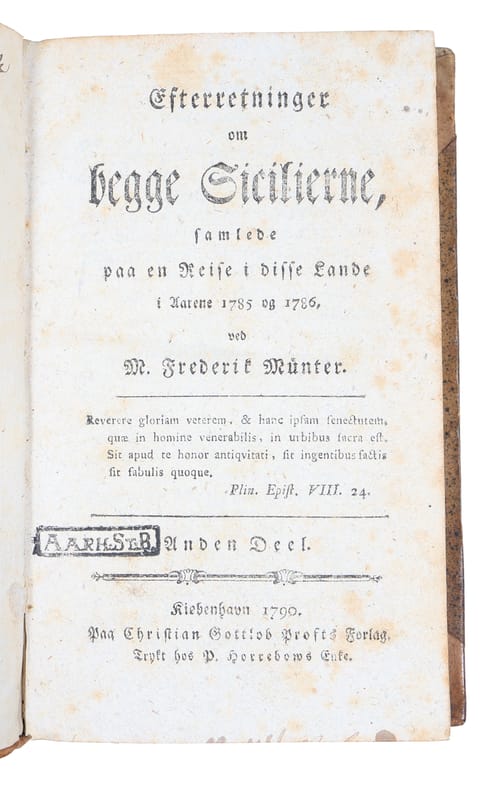 Efterretninger
om
begge Sicilierne,
samlede
paa en Reise i disse Lande
i Aarene 1785 og 1786,
ved
M. Frederik Münter.
Reverere gloriam veterem, & hanc ipsam senectutem,
quæ in homine venerabilis, in urbibus sacra est.
Sit apud te honor antiqvitati, sit ingentibus factis
sit fabulis quoque.
Plin. Epist. VIII. 24.
AARH. ST. B.
Anden Deel.
Kiøbenhavn 1790.
Paa Christian Gottlob Profts Forlag.
Trykt hos P. Horrebows Enke.